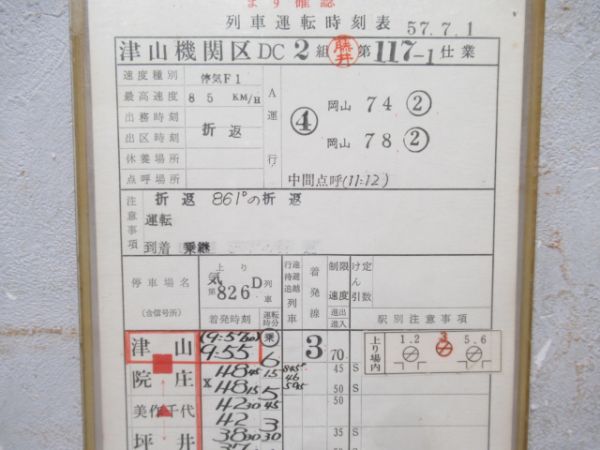 まず確認
列車運転時刻表 57.7.1
津山機関区 DC 2組 藤井 第117-1仕業
速度種別 停気F1
最高速度 85 KM/H
出務時刻
出区時刻
折返
休養場所
点呼場所
A運行
④ 岡山 74 ②
岡山 78 ②
中間点呼(11:12)
注意事項
折返 861°の折返
運転
到着 乗継
停車場名
(合信号所)
上り
気
第826D列車
着発時刻 運転時分
行違待避追越列車
着発線
制限速度
進出
進入
けん引定数
駅別注意事項
津山 (9:57 9:55 乗 3 70
上り場内 1.2 3 5.6
院庄 × 6 45 S
48 45 15
48 15 5 50
美作千代 42 30 45 50
42 3
坪井 38 30 30 35 S
50